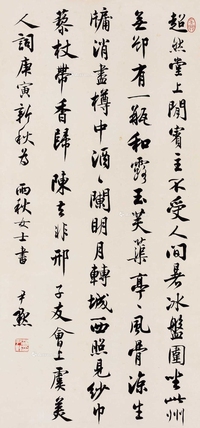 超然堂上閒賓主不受人間暑冰盤圍坐此州
無卻有一瓶和露玉芙蕖亭〻風骨涼生
牖消盡樽中酒〻闌明月轉城西照見紗巾
藜杖帶香歸 陳去非邢子友會上虞美
人詞庚寅新秋為
雨秋女士書 尹默